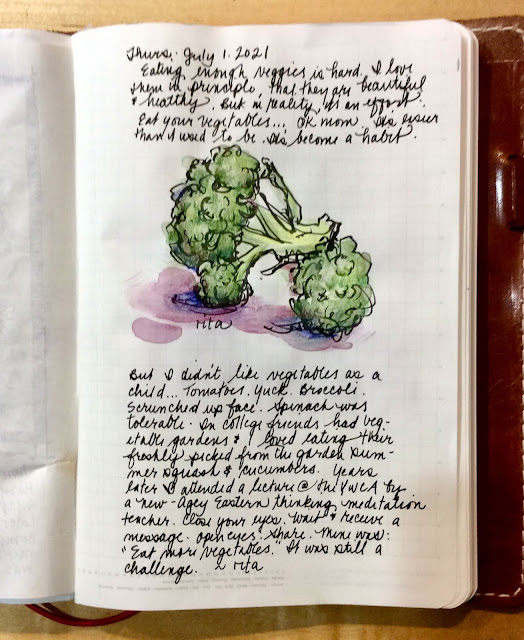 Thurs. July 1. 2021
Eating enough veggies is hard. I love
them in principle, that they are beautiful
& healthy. But in reality, its an effort.
Eat your vegetables... OK mom. Its easier
than it used to be. Its become a habit.
rita
But I didn't like vegetables as a
child... Tomatoes. Yuck. Broccoli.
Scrunched up face. Spinach was
tolerable. In college friends had veg-
etable gardens & I loved eating their
freshly picked from the garden sum-
mer squash & cucumbers. Years
later I attended a lecture @ the YWCA by
a new-agey Eastern thinking, meditation
teacher. Close your eyes. Wait & receive a
message. Open eyes. Share. Mine was:
"Eat more vegetables." It was still a
challenge. rita